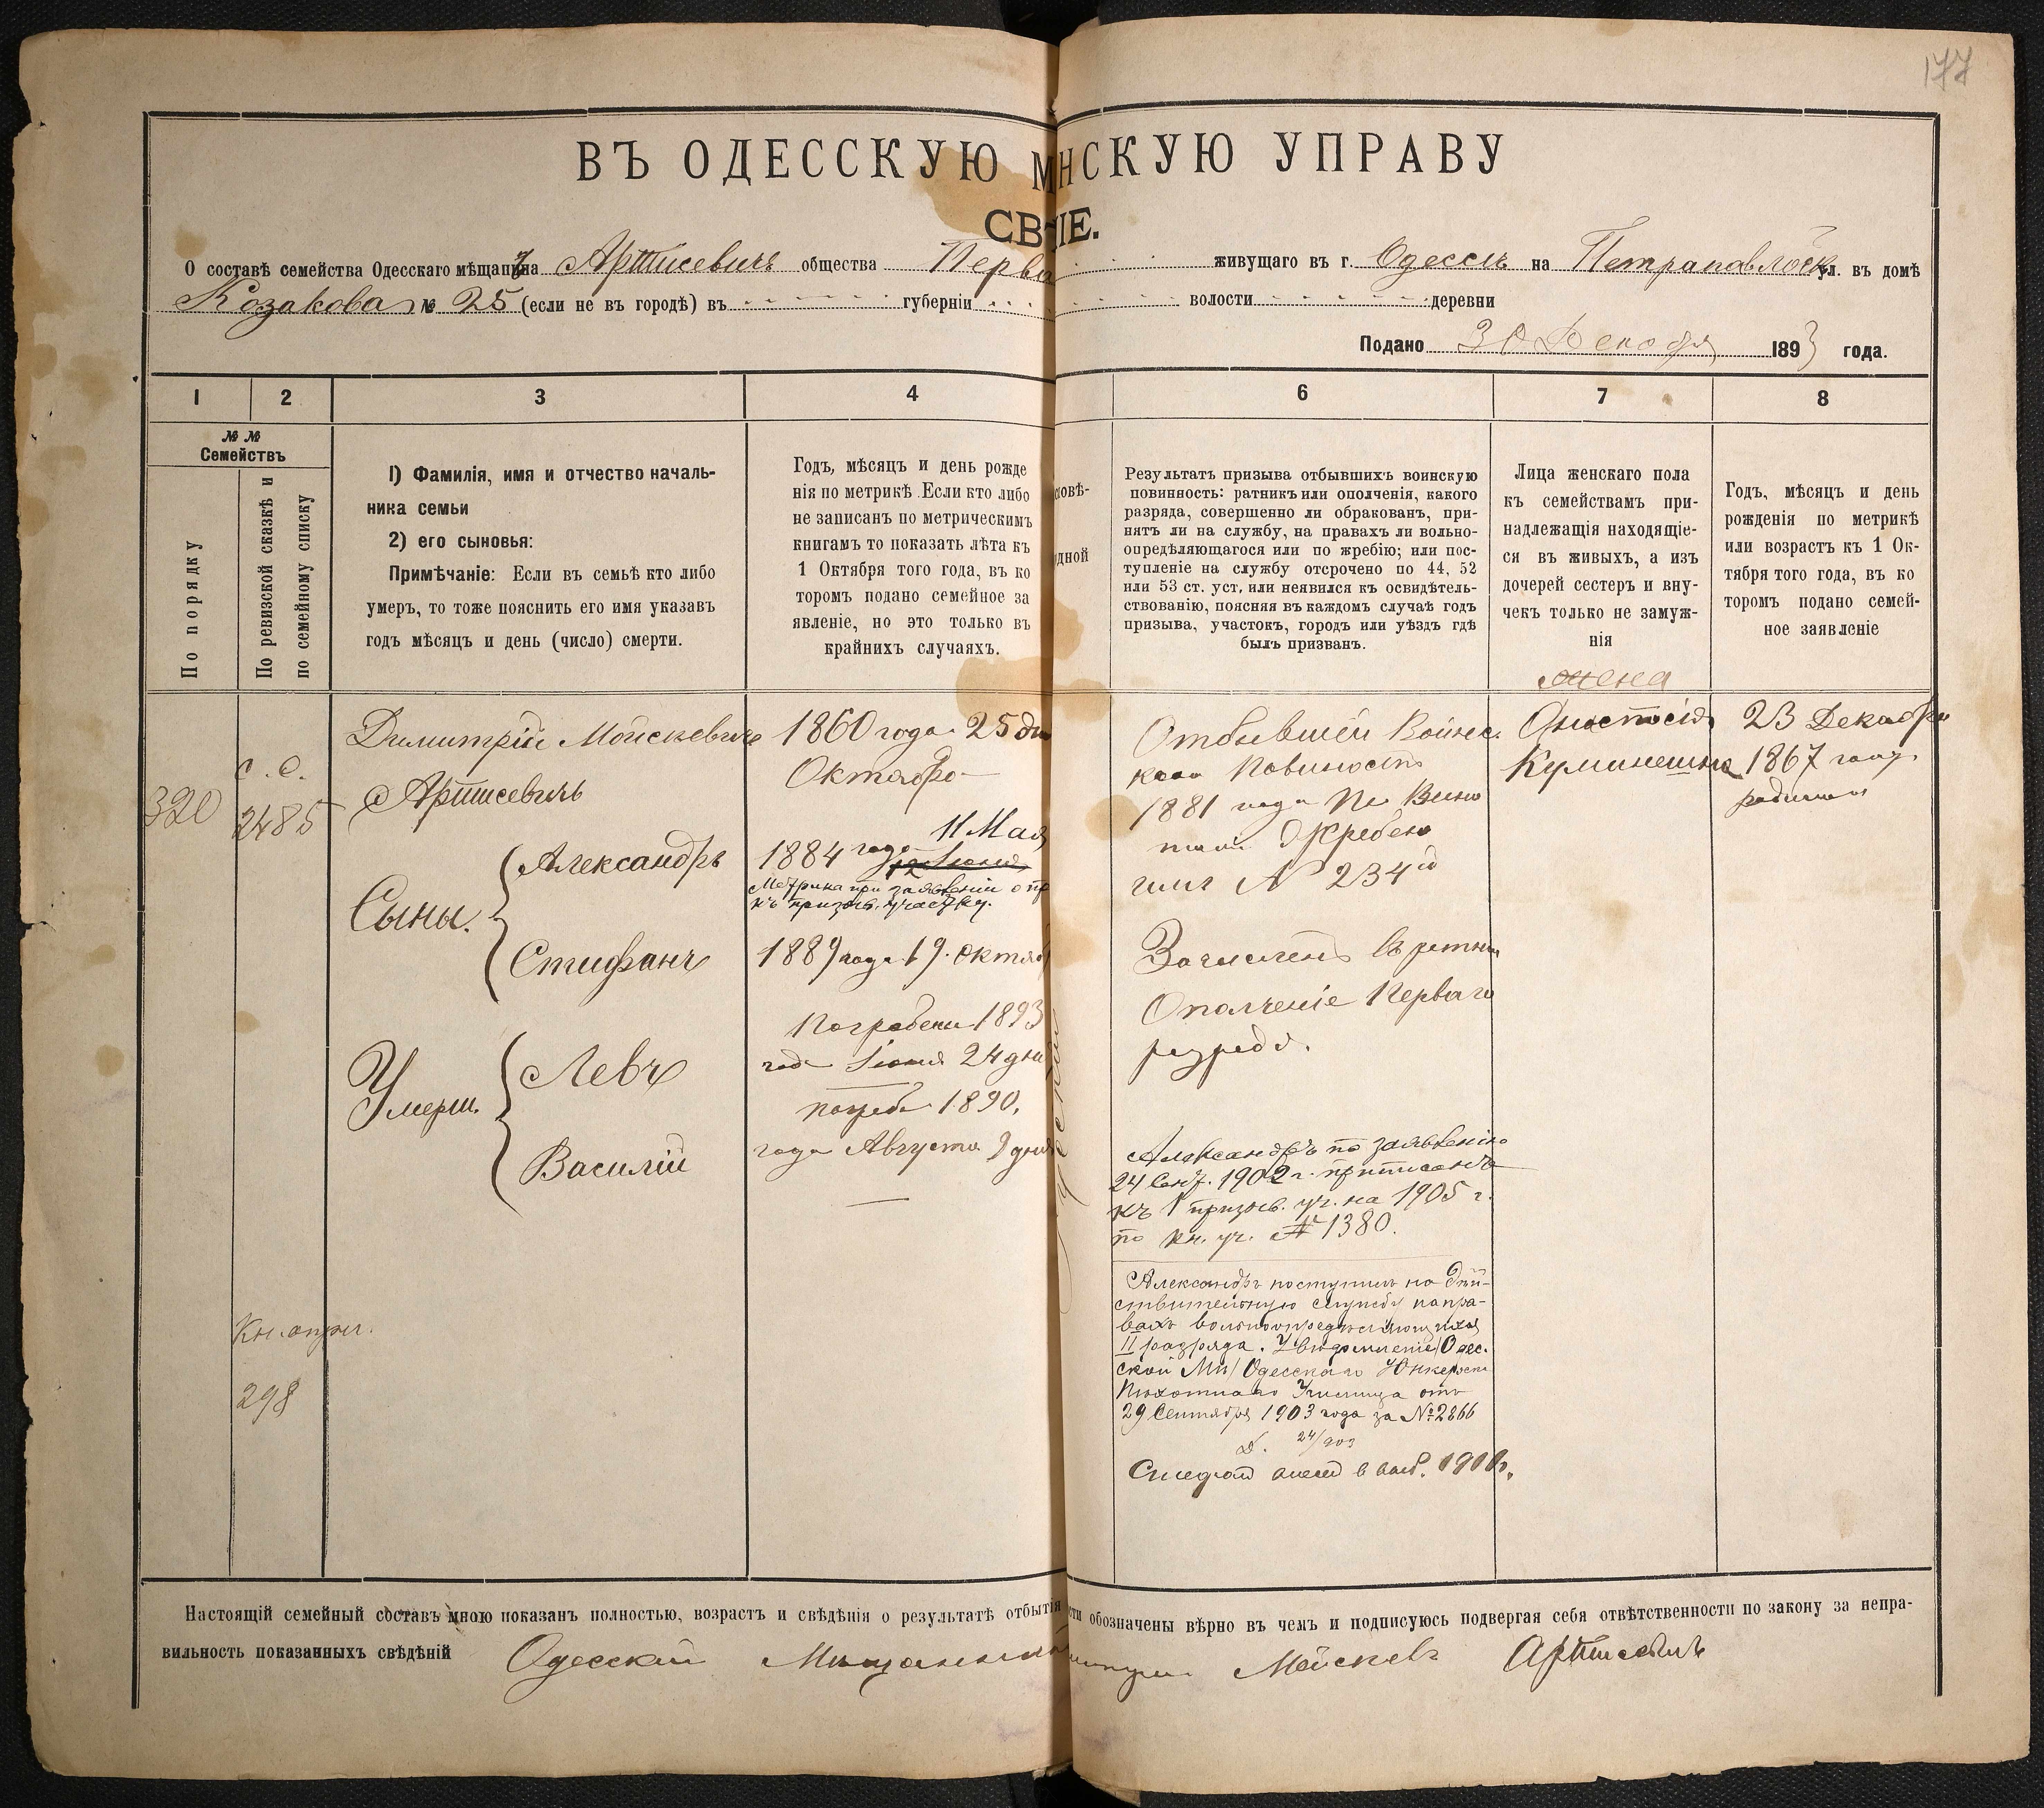 177
ВЪ ОДЕССКУЮ МНСКУЮ УПРАВУ
СВ ІЕ.
О составѣ семейства Одесскаго мѣщанина Артисевичъ общества Перва живущаго въ г. Одессѣ на Петрапавлоск ул. въ домѣ
Козакова № 25 (если не въ городѣ) въ губерніи волости деревни
Подано 30 Декобря 1893 года.
1 2 3 4 6 7 8
№ № Семействъ
По порядку
По ревизской сказкѣ и по семейному списку
1) Фамилія, имя и отчество началь-
ника семьи
2) его сыновья:
Примѣчаніе: Если въ семьѣ кто либо
умеръ, то тоже пояснить его имя указавъ
годъ мѣсяцъ и день (число) смерти.
Годъ, мѣсяцъ и день рожде
нія по метрикѣ. Если кто либо
не записанъ по метрическимъ
книгамъ то показать лѣта къ
1 Октября того года, въ ко
торомъ подано семейное за
явленіе, но это только въ
крайнихъ случаяхъ.
овѣ-
дной
Результатъ призыва отбывшихъ воинскую
повинность: ратникъ или ополченія, какого
разряда, совершенно ли обракованъ, при-
нятъ ли на службу, на правахъ ли вольно-
опредѣляющагося или по жребію; или пос-
тупленіе на службу отсрочено по 44, 52
или 53 ст. уст, или неявился къ освидѣтель-
ствованію, поясняя въ каждомъ случаѣ годъ
призыва, участокъ, городъ или уѣздъ гдѣ
былъ призванъ.
Лица женскаго пола
къ семействамъ при-
надлежащія находящіе-
ся въ живыхъ, а изъ
дочерей сестеръ и вну-
чекъ только не замуж-
нія
Годъ, мѣсяцъ и день
рожденія по метрикѣ
или возрастъ къ 1 Ок-
тября того года, въ ко
торомъ подано семей-
ное заявленіе
320
с. с.
2485
Димитрій Мойскевичъ
Артисевичъ
Сыны. Александръ
Стифанъ
Умерш. Левъ
Василій
1860 года 25 дн
Октобро
11 Мая
1884 года 12 Іюня
Метрика при заявленіи о пр
къ призов. участку.
1889 года 19. октяб
Погребенъ 1893
года Іюня 24 дня
погребе 1890,
года Августа 9 дня
Отбывшей Воинс
кою Повиность
1881 года По
№ 234
Зачисленъ въ ратни
Ополченіе Перваго
розреда.
Александръ по заявленію
24 Сент. 1902 г. приписанъ
къ 1 призыв. уч. на 1905 г.
по кн. уч. № 1380.
Александръ поступилъ на дѣй-
ствительную службу на пра-
вахъ вольноопредѣляющихся
II разряда. Увѣдомленіе Одес.
ской Одесскаго Юнкерск
Пѣхотнаго Училища отъ
29 Сентября 1903 года за № 2866
Д. 24/903
жена
Аностосія
23 Декабря
1867 году
родилась
Кн. опри.
298
Настоящій семейный составъ мною показанъ полностью, возрастъ и свѣдѣнія о результатѣ отбытія сти обозначены вѣрно въ чемъ и подписуюсь подвергая себя отвѣтственности по закону за непра-
вильность показанныхъ свѣдѣній Одесскій Мещанинъ Мойскевъ Артисевичъ